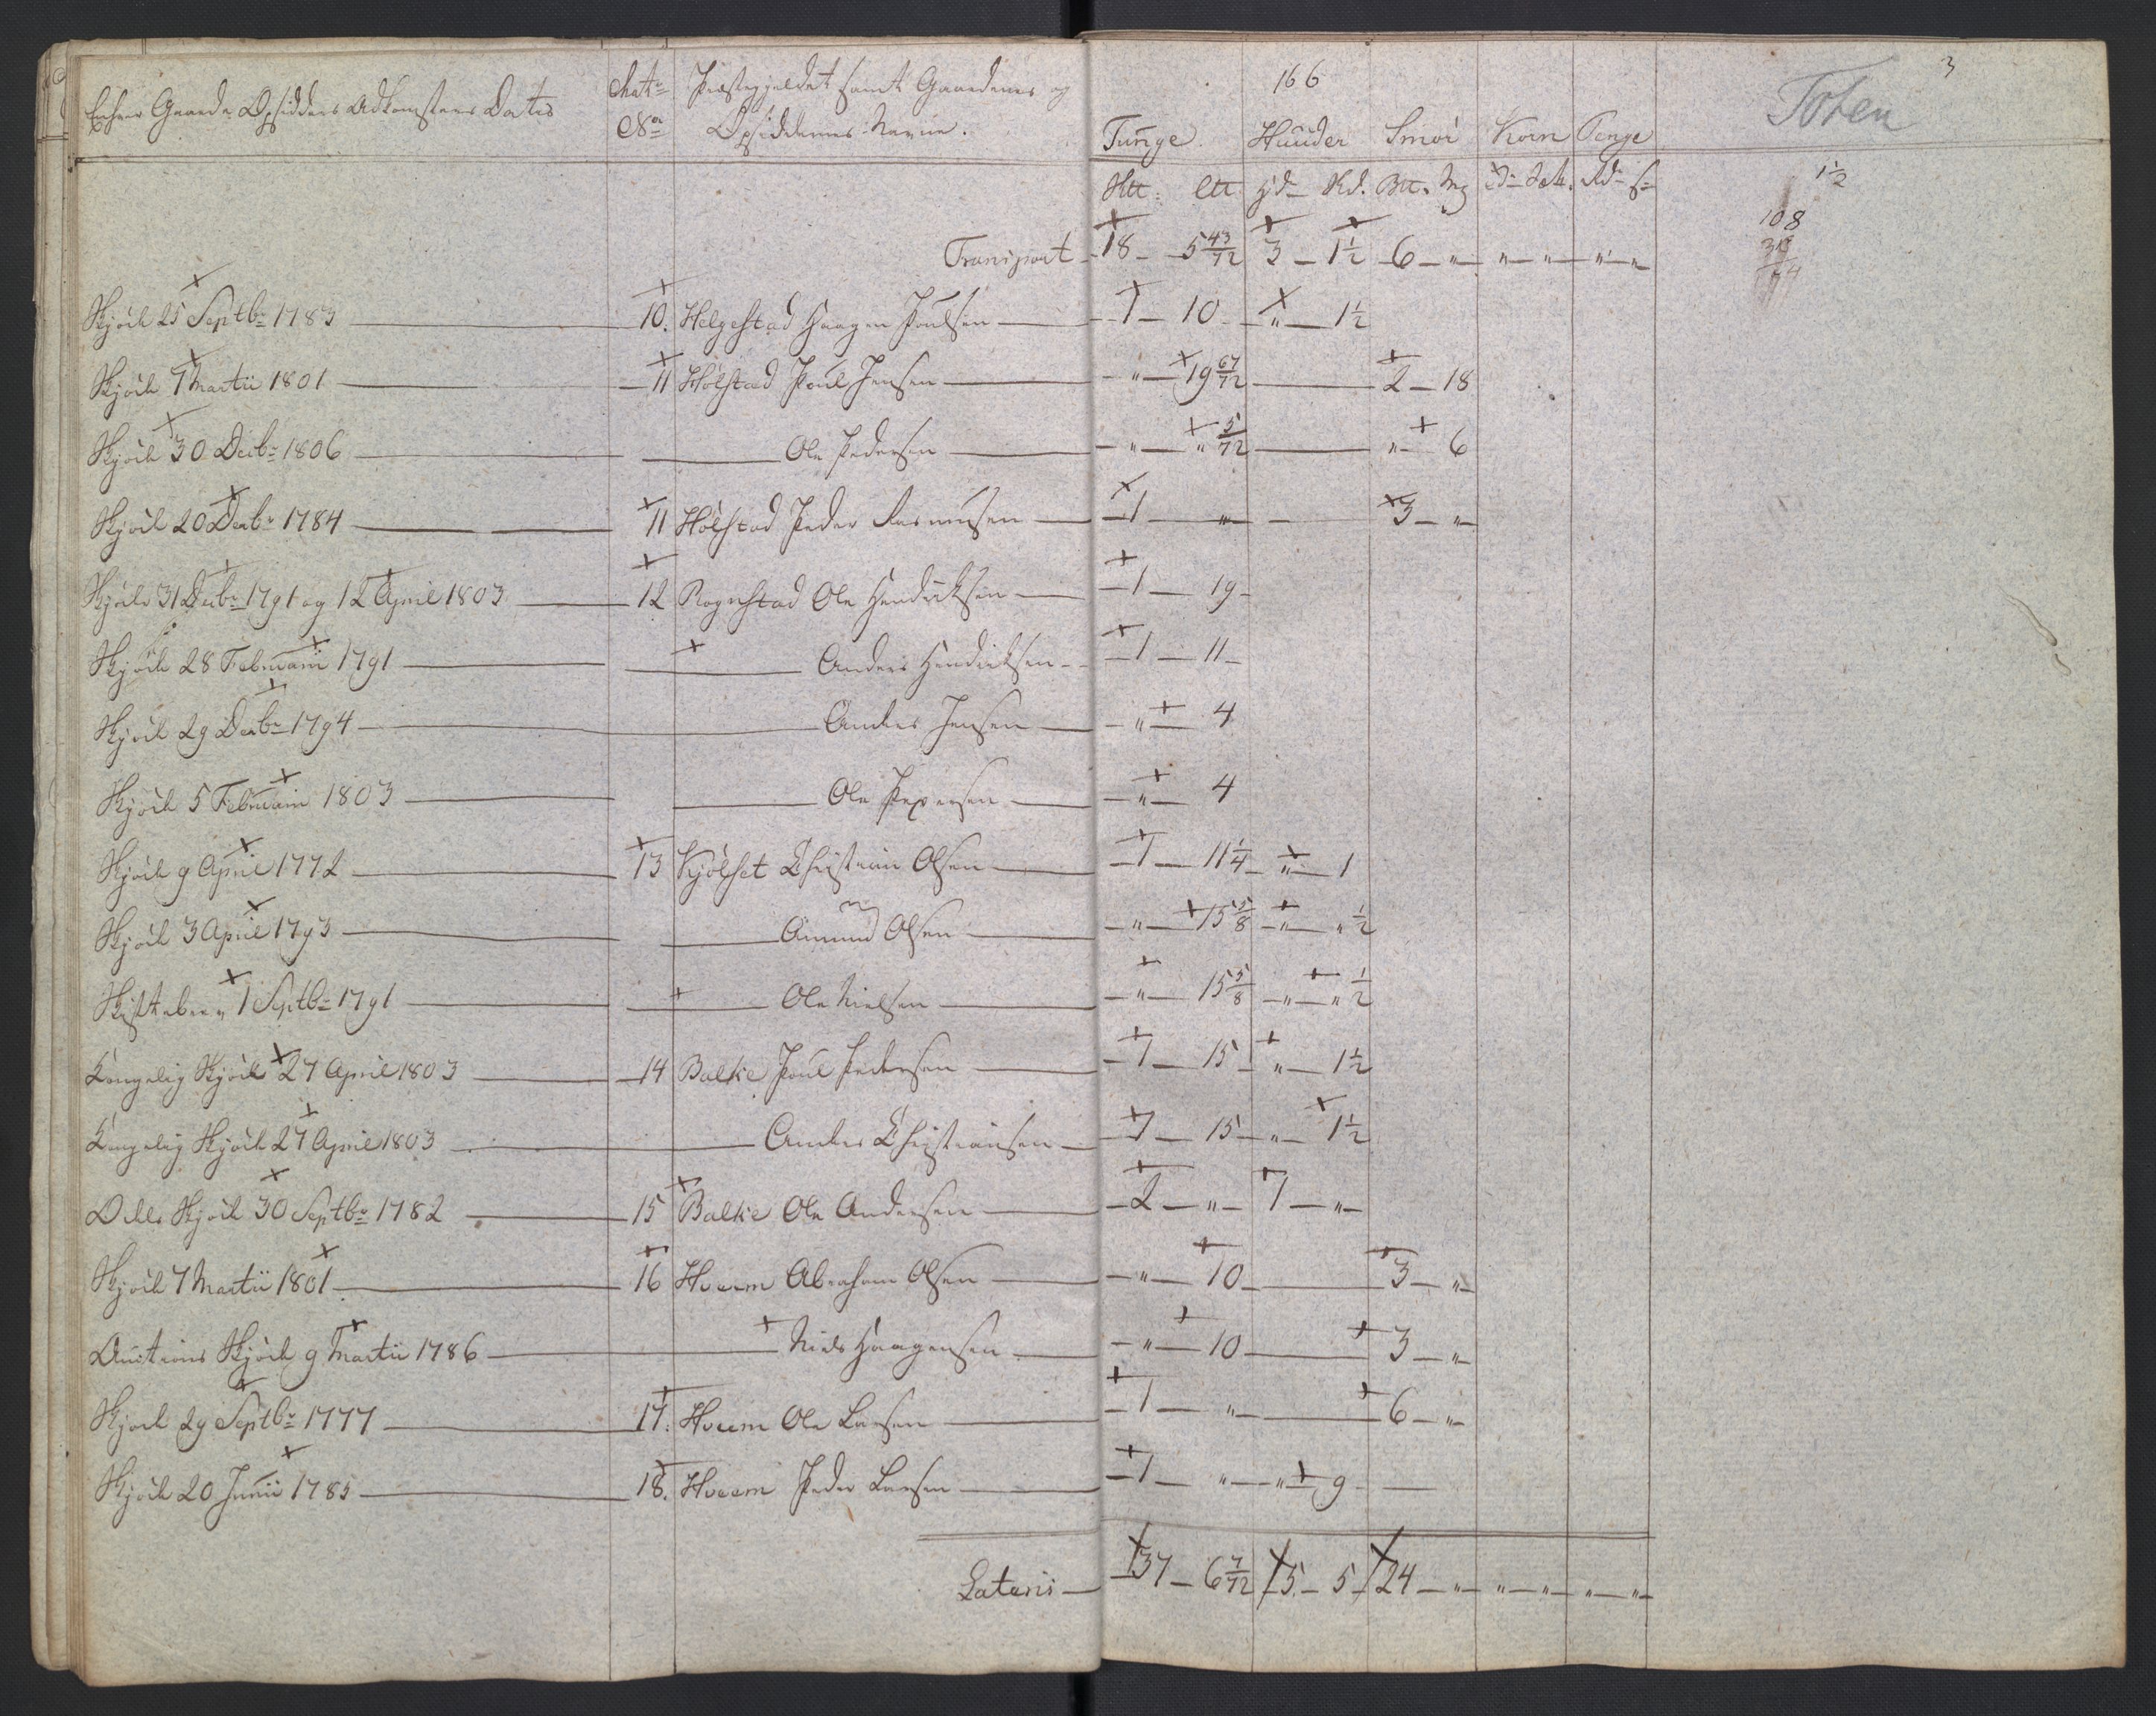 Enhver Gaards Opsidders Adkomsters Datis | Mat:= No= | Præstegjeldet samt Gaardenes og Opsiddernes Navne. | Tunge. | Huuder | Smør | Korn | Penge
166
3
Toten
1½
108
Transport - 18 - 5 43/72 | 3 - 1½ | 6 - " | " - " | " - "
Skjøde 25 Septbr 1783 — 10. Helgestad Haagen Poulsen — 1 - 10 - " - 1½
Skjøde 7 Martii 1801 — 11 Hølstad Poul Jensen — " - 19 67/72 — 2 - 18
Skjøde 30 Decbr 1806 — Ole Pedersen — " - " 5/72 — " - 6
Skjøde 20 Decbr 1784 — 11 Hølstad Peder Rasmusen — 1 - " — 3 - "
Skjøde 31 Decbr 1791 og 12 April 1803 — 12 Rognstad Ole Hendriksen — 1 - 19 -
Skjøde 28 Februarii 1791 — Anders Hendriksen - 1 - 11 -
Skjøde 29 Decbr 1794 — Anders Jensen — " - 4
Skjøde 5 Februarii 1803 — Ole Pedersen — " - 4
Skjøde 9 April 1772 — 13 Kjølset Christian Olsen — 1 - 11¼ - " - 1
Skjøde 3 April 1793 — Amund Olsen — " - 15 5/8 - " - " ½
1 Septbr 1791 — Ole Nielsen — " - 15 5/8 - " - " ½
Kongelig Skjøde 27 April 1803 — 14 Balke Poul Pedersen — 1 - 15 - " - 1½
Kongelig Skjøde 27 April 1803 — Anders Christiansen — 1 - 15 - " - 1½
Skjøde 30 Septbr 1782 — 15 Balke Ole Andersen — 2 - " - 1 - "
Skjøde 7 Martii 1801 — 16 Hveem Abraham Olsen — " - 10 — 3 - "
Auctions Skjøde 9 Martii 1786 — Niels Haagensen — " - 10 — 3 - "
Skjøde 29 Septbr 1777 — 17. Hveem Ole Larsen — 1 - " — 6 - "
Skjøde 20 Junii 1785 — 18. Hveem Peder Larsen — 1 - " - " - 9 —
Lateris — 37 - 6 7/72 | 5 - 5 | 24 - " | " - " | " - "